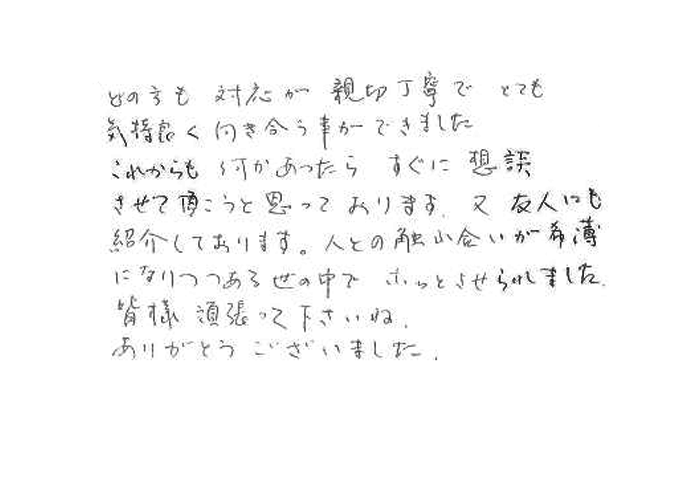 どの方も 対応が 親切丁寧で とても
気持良く 向き合う事ができました
これからも 何かあったら すぐに 想談
させて頂こうと思っております. 又 友人にも
紹介しております。人との触れ合いが希薄
になりつつある世の中で ホッとさせられました.
皆様 頑張って下さいね.
ありがとう ございました.